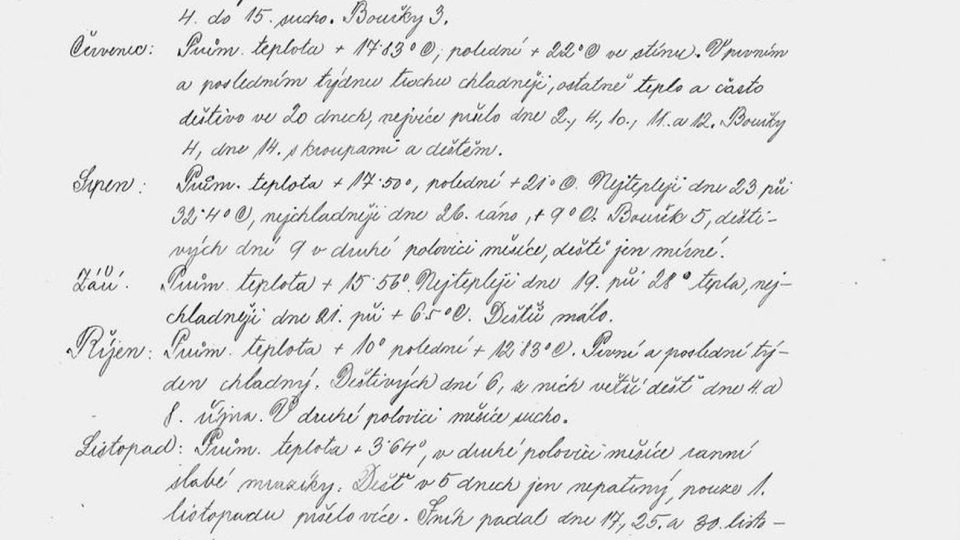 4. do 15. sucho. Bouřky 3.
Červenec: Prům. teplota + 17·83°C, polední + 22°C ve stínu. V prvním
a posledním týdnu trochu chladněji, ostatně teplo a často
deštivo ve 20 dnech, nejvíce pršelo dne 2., 4., 10., 11. a 12. Bouřky
4, dne 14. s kroupami a deštěm.
Srpen: Prům. teplota + 17·50°, polední + 21°C. Nejtepleji dne 23 při
32·4°C, nejchladněji dne 26. ráno, + 9°C. Bouřk 5, dešti-
vých dní 9 v druhé polovici měsíce, deště jen mírné.
Září. Prům. teplota + 15·56°. Nejtepleji dne 19. při 28° tepla, nej-
chladněji dne 21. při + 6·5°C. Deštů málo.
Říjen: Prům. teplota + 10° polední + 12·83°C. První a poslední tý-
den chladný. Deštivých dní 6, z nich větší déšť dne 4. a
8. října. V druhé polovici měsíce sucho.
Listopad: Prům. teplota + 3·64°, v druhé polovici měsíce ranní
slabé mrazíky. Déšť v 5 dnech jen nepatrný, pouze 1.
listopadu pršelo více. Sníh padal dne 17., 25. a 30. listo-